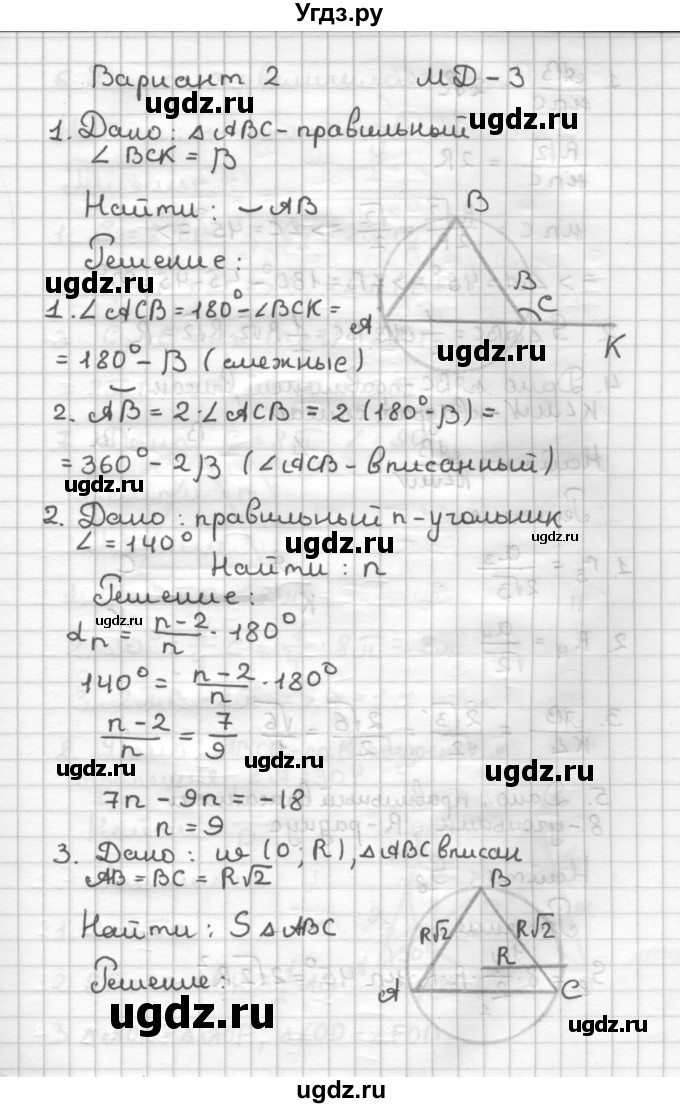 Угдз.ру
Вариант 2 МД-3
ugdz.ru ugdz.ru
1. Дано: △ABC - правильный
∠BCK = β
Найти: ◡AB
Решение:
ugdz.ru
1. ∠ACB = 180° - ∠BCK =
= 180° - β (смежные)
B
A
β
C
K
ugdz.ru
2. ◡AB = 2·∠ACB = 2(180° - β) =
= 360° - 2β (∠ACB - вписанный)
ugdz.ru
2. Дано: правильный n-угольник
∠ = 140°
ugdz.ru ugdz.ru
Найти: n
Решение:
ugdz.ru
αn = n-2/n · 180°
140° = n-2/n · 180°
n-2/n = 7/9
ugdz.ru ugdz.ru ugdz.ru
7n - 9n = -18
n = 9
3. Дано: w(O; R), △ABC вписан
AB = BC = R√2
Найти: S△ABC
Решение:
B
R√2 R√2
R
A C
ugdz.ru ugdz.ru
ugdz.ru